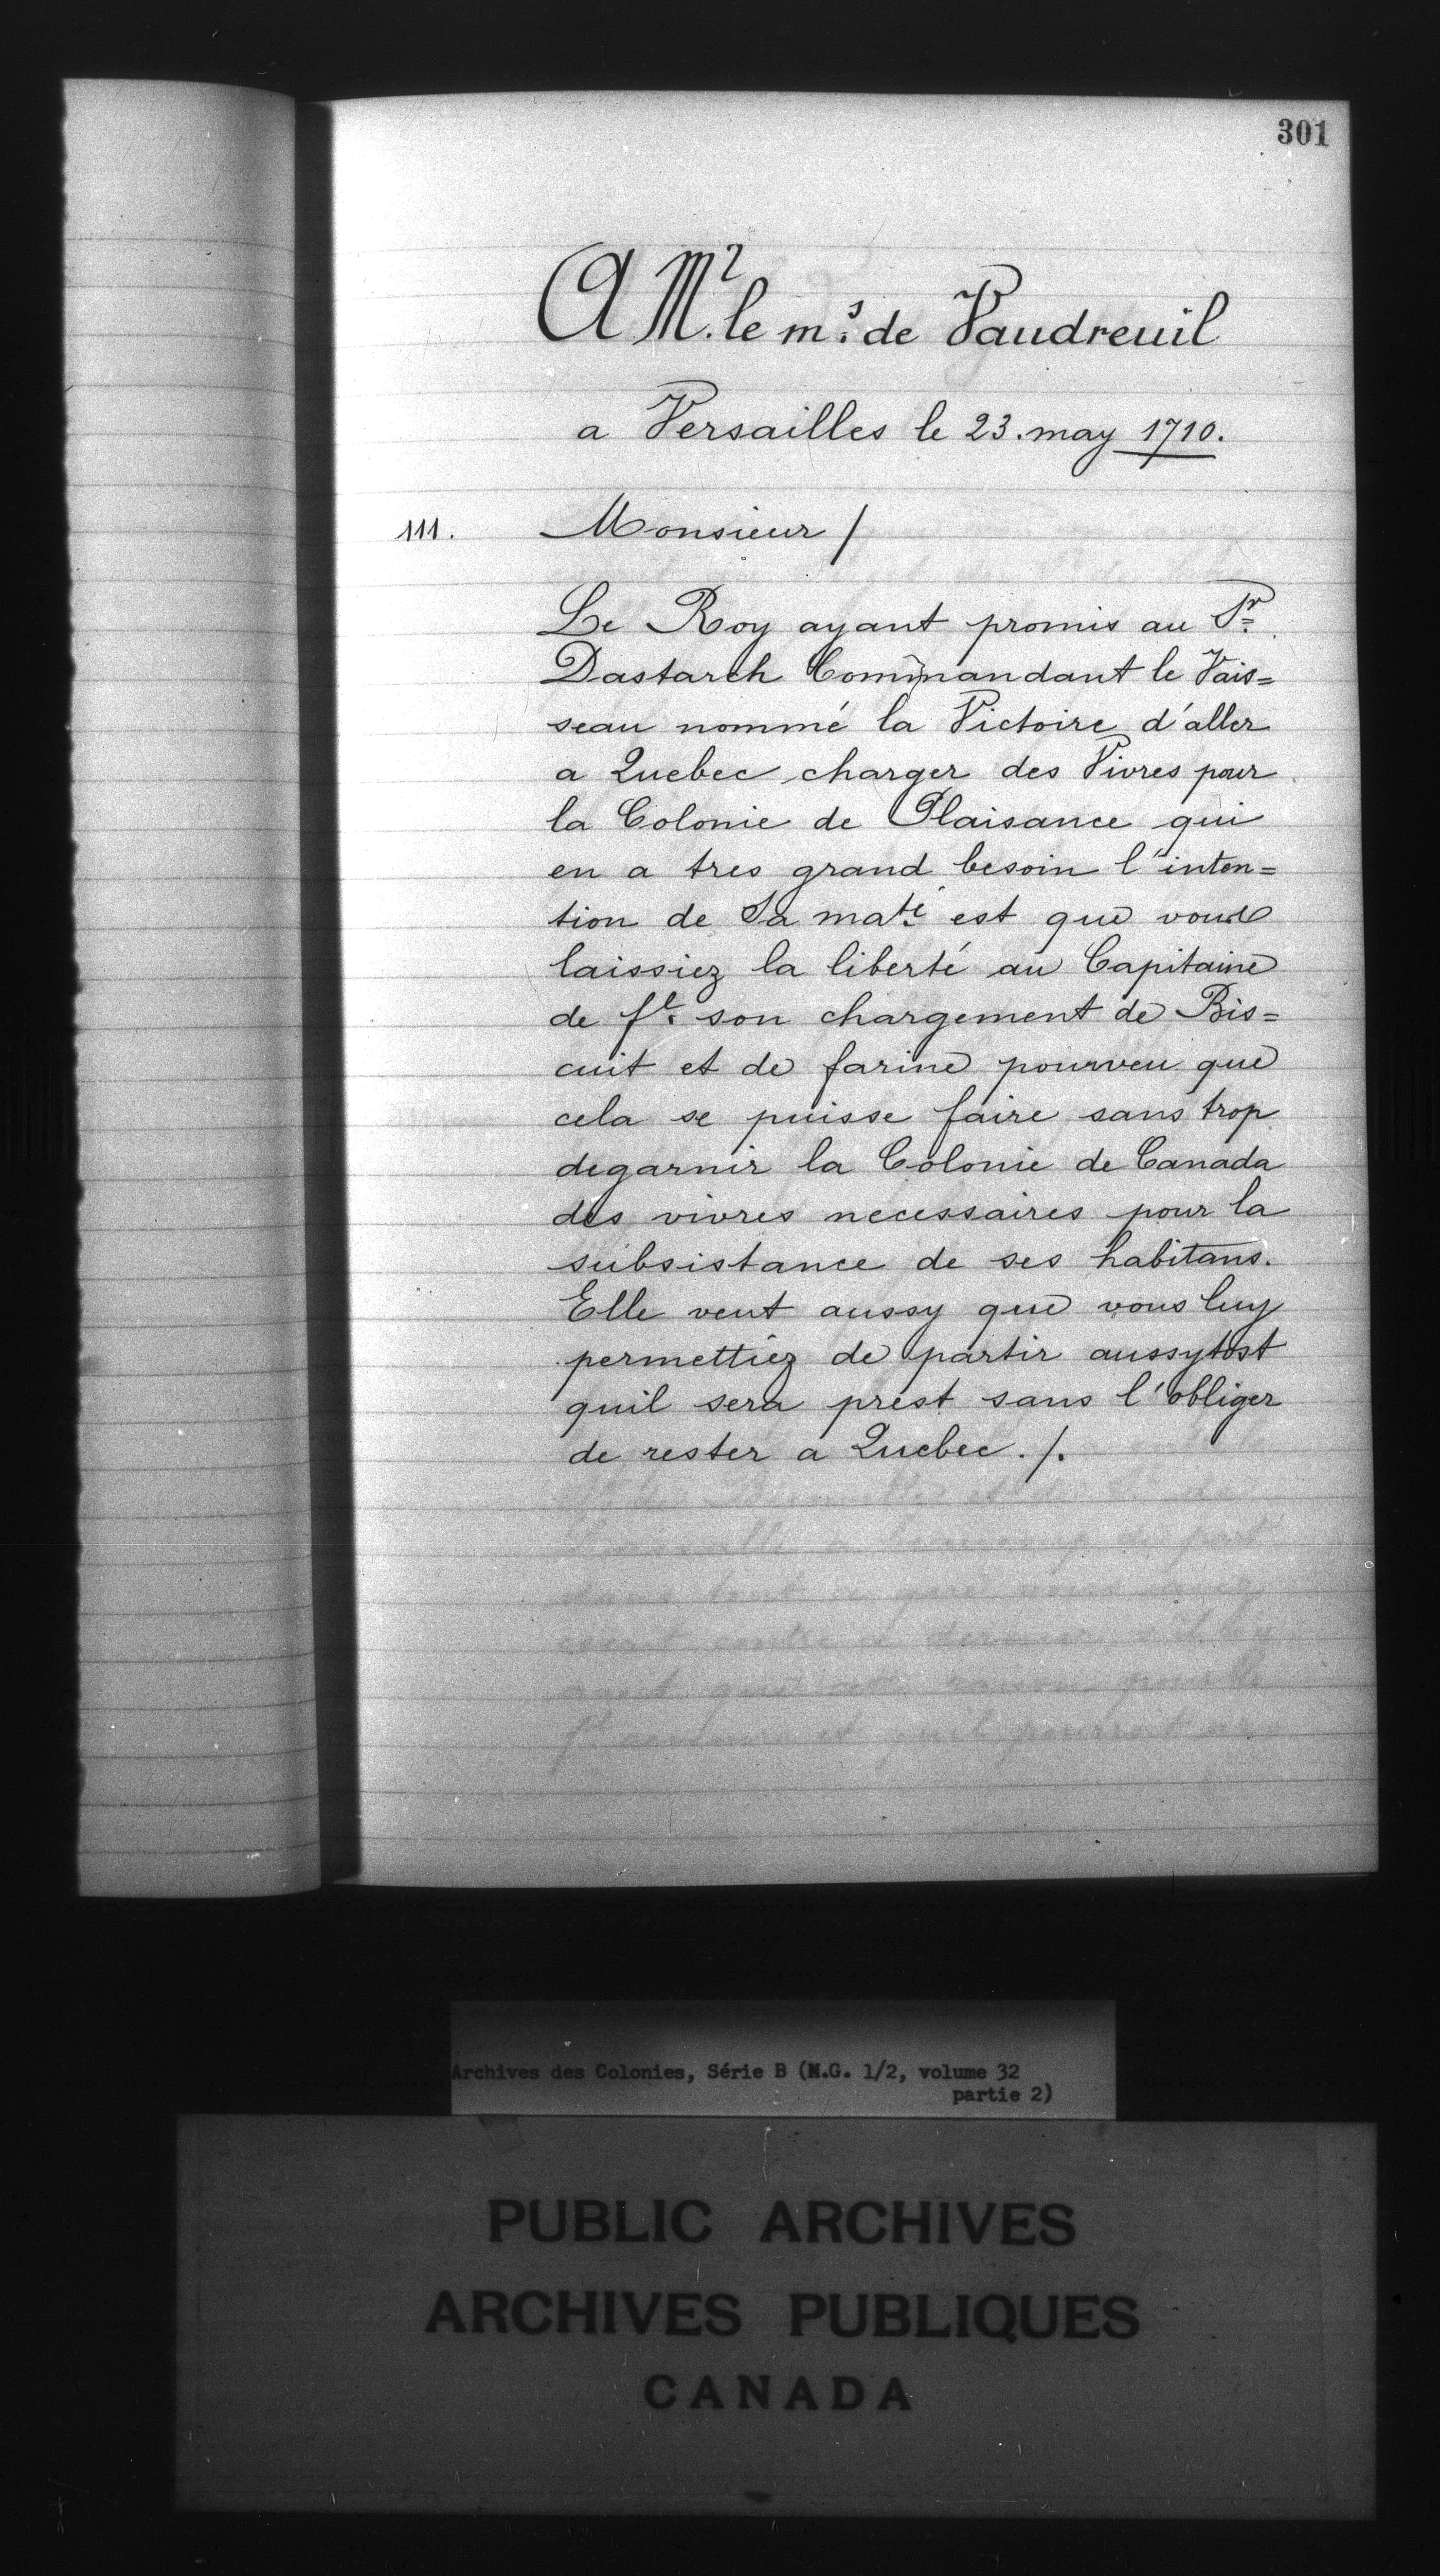 301
A Mr. le ms. de Vaudreuil
a Versailles le 23. may 1710.
111. Monsieur /
Le Roy ayant promis au Sr.
Dastarch Commandant le Vais=
seau nommé la Victoire d'aller
a Quebec charger des Vivres pour
la Colonie de Plaisance qui
en a tres grand besoin l'inten=
tion de Sa maté. est que vous
laissiez la liberté au Capitaine
de fe. son chargement de Bis=
cuit et de farine pourveu que
cela se puisse faire sans trop
degarnir la Colonie de Canada
des vivres necessaires pour la
subsistance de ses habitans.
Elle veut aussy que vous luy
permettiez de partir aussytost
quil sera prest sans l'obliger
de rester a Quebec ./.
Archives des Colonies, Série B (M.G. 1/2, volume 32
partie 2)
PUBLIC ARCHIVES
ARCHIVES PUBLIQUES
CANADA